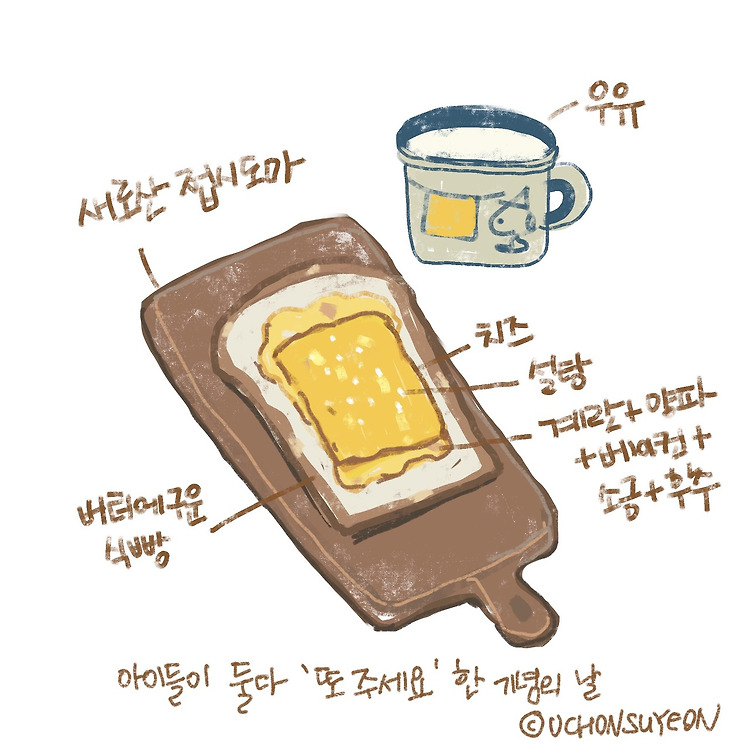 우유
새로산 접시도마
치즈
설탕
계란+양파
+베이컨+
소금+후추
버터에구운
식빵
아이들이 둘다 '또 주세요' 한 개념의 날
©UCHONSUYEON